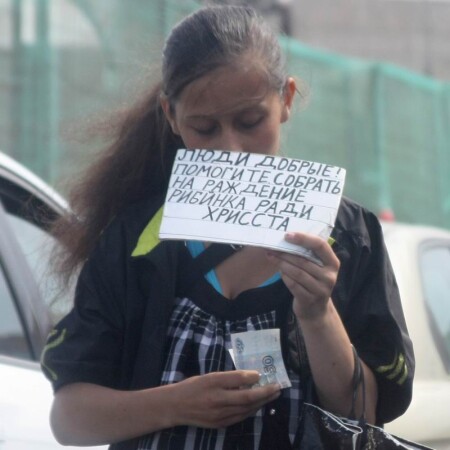 ЛЮДИ ДОБРЫЕ!
ПОМОГИТЕ СОБРАТЬ
НА РАЖДЕНИЕ
РИБИНКА РАДИ
ХРИССТА
50